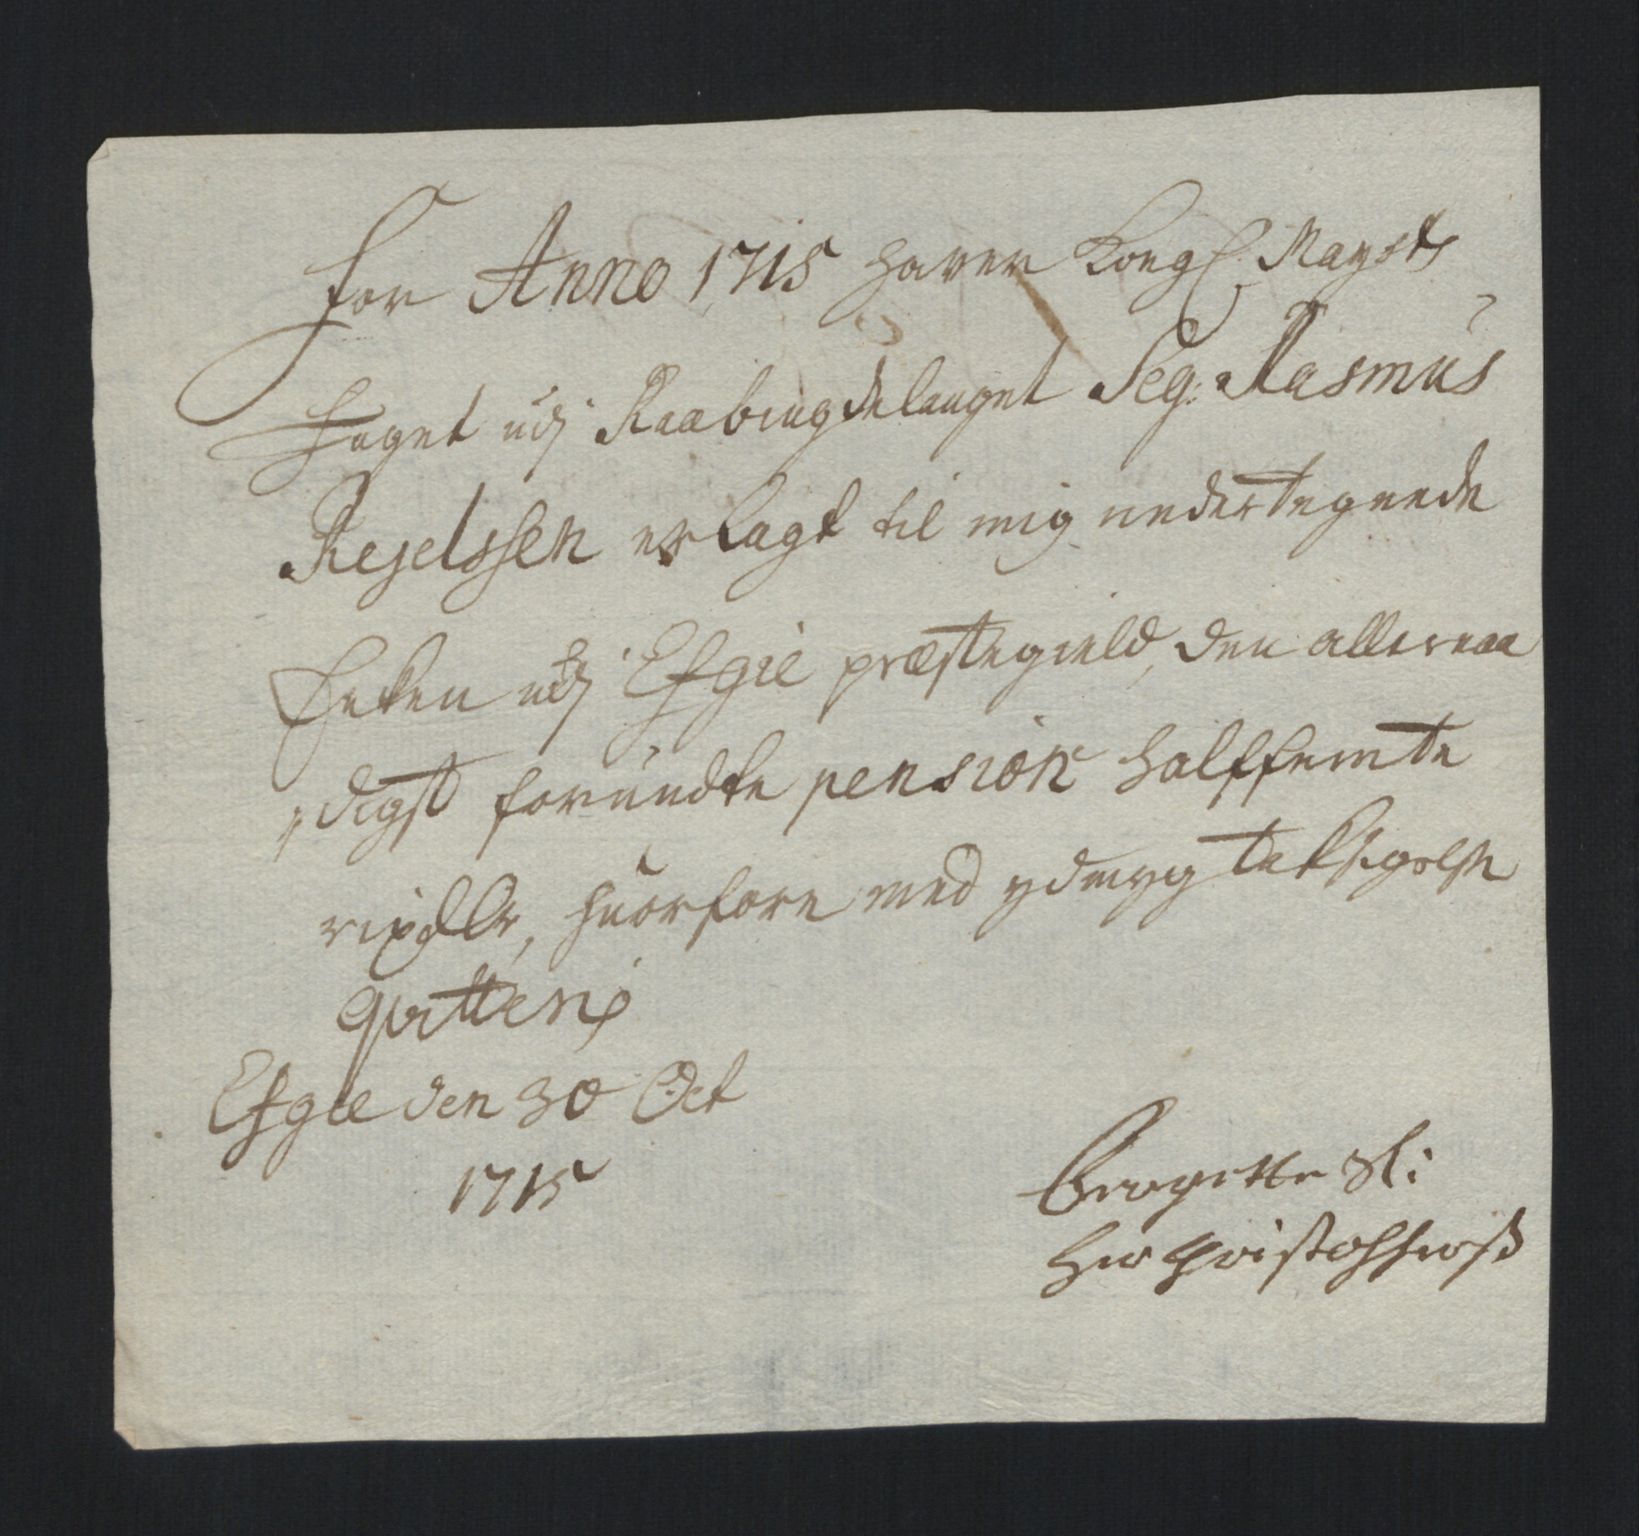 for Anno 1715 haver Kongl. Mayst:s
Foget udj Raabÿgdelauget Seg: Rasmus
Rejelssen erlagt til mig undertegnede
Encken udj Efgie præstegield, den allernaa
digst forundte pension halffemte
rixdlr, huorfore med ydmyg taksigelse
qvitterer
Efgie den 30 Oct
1715
Birgitte Sl:
Her Christophers